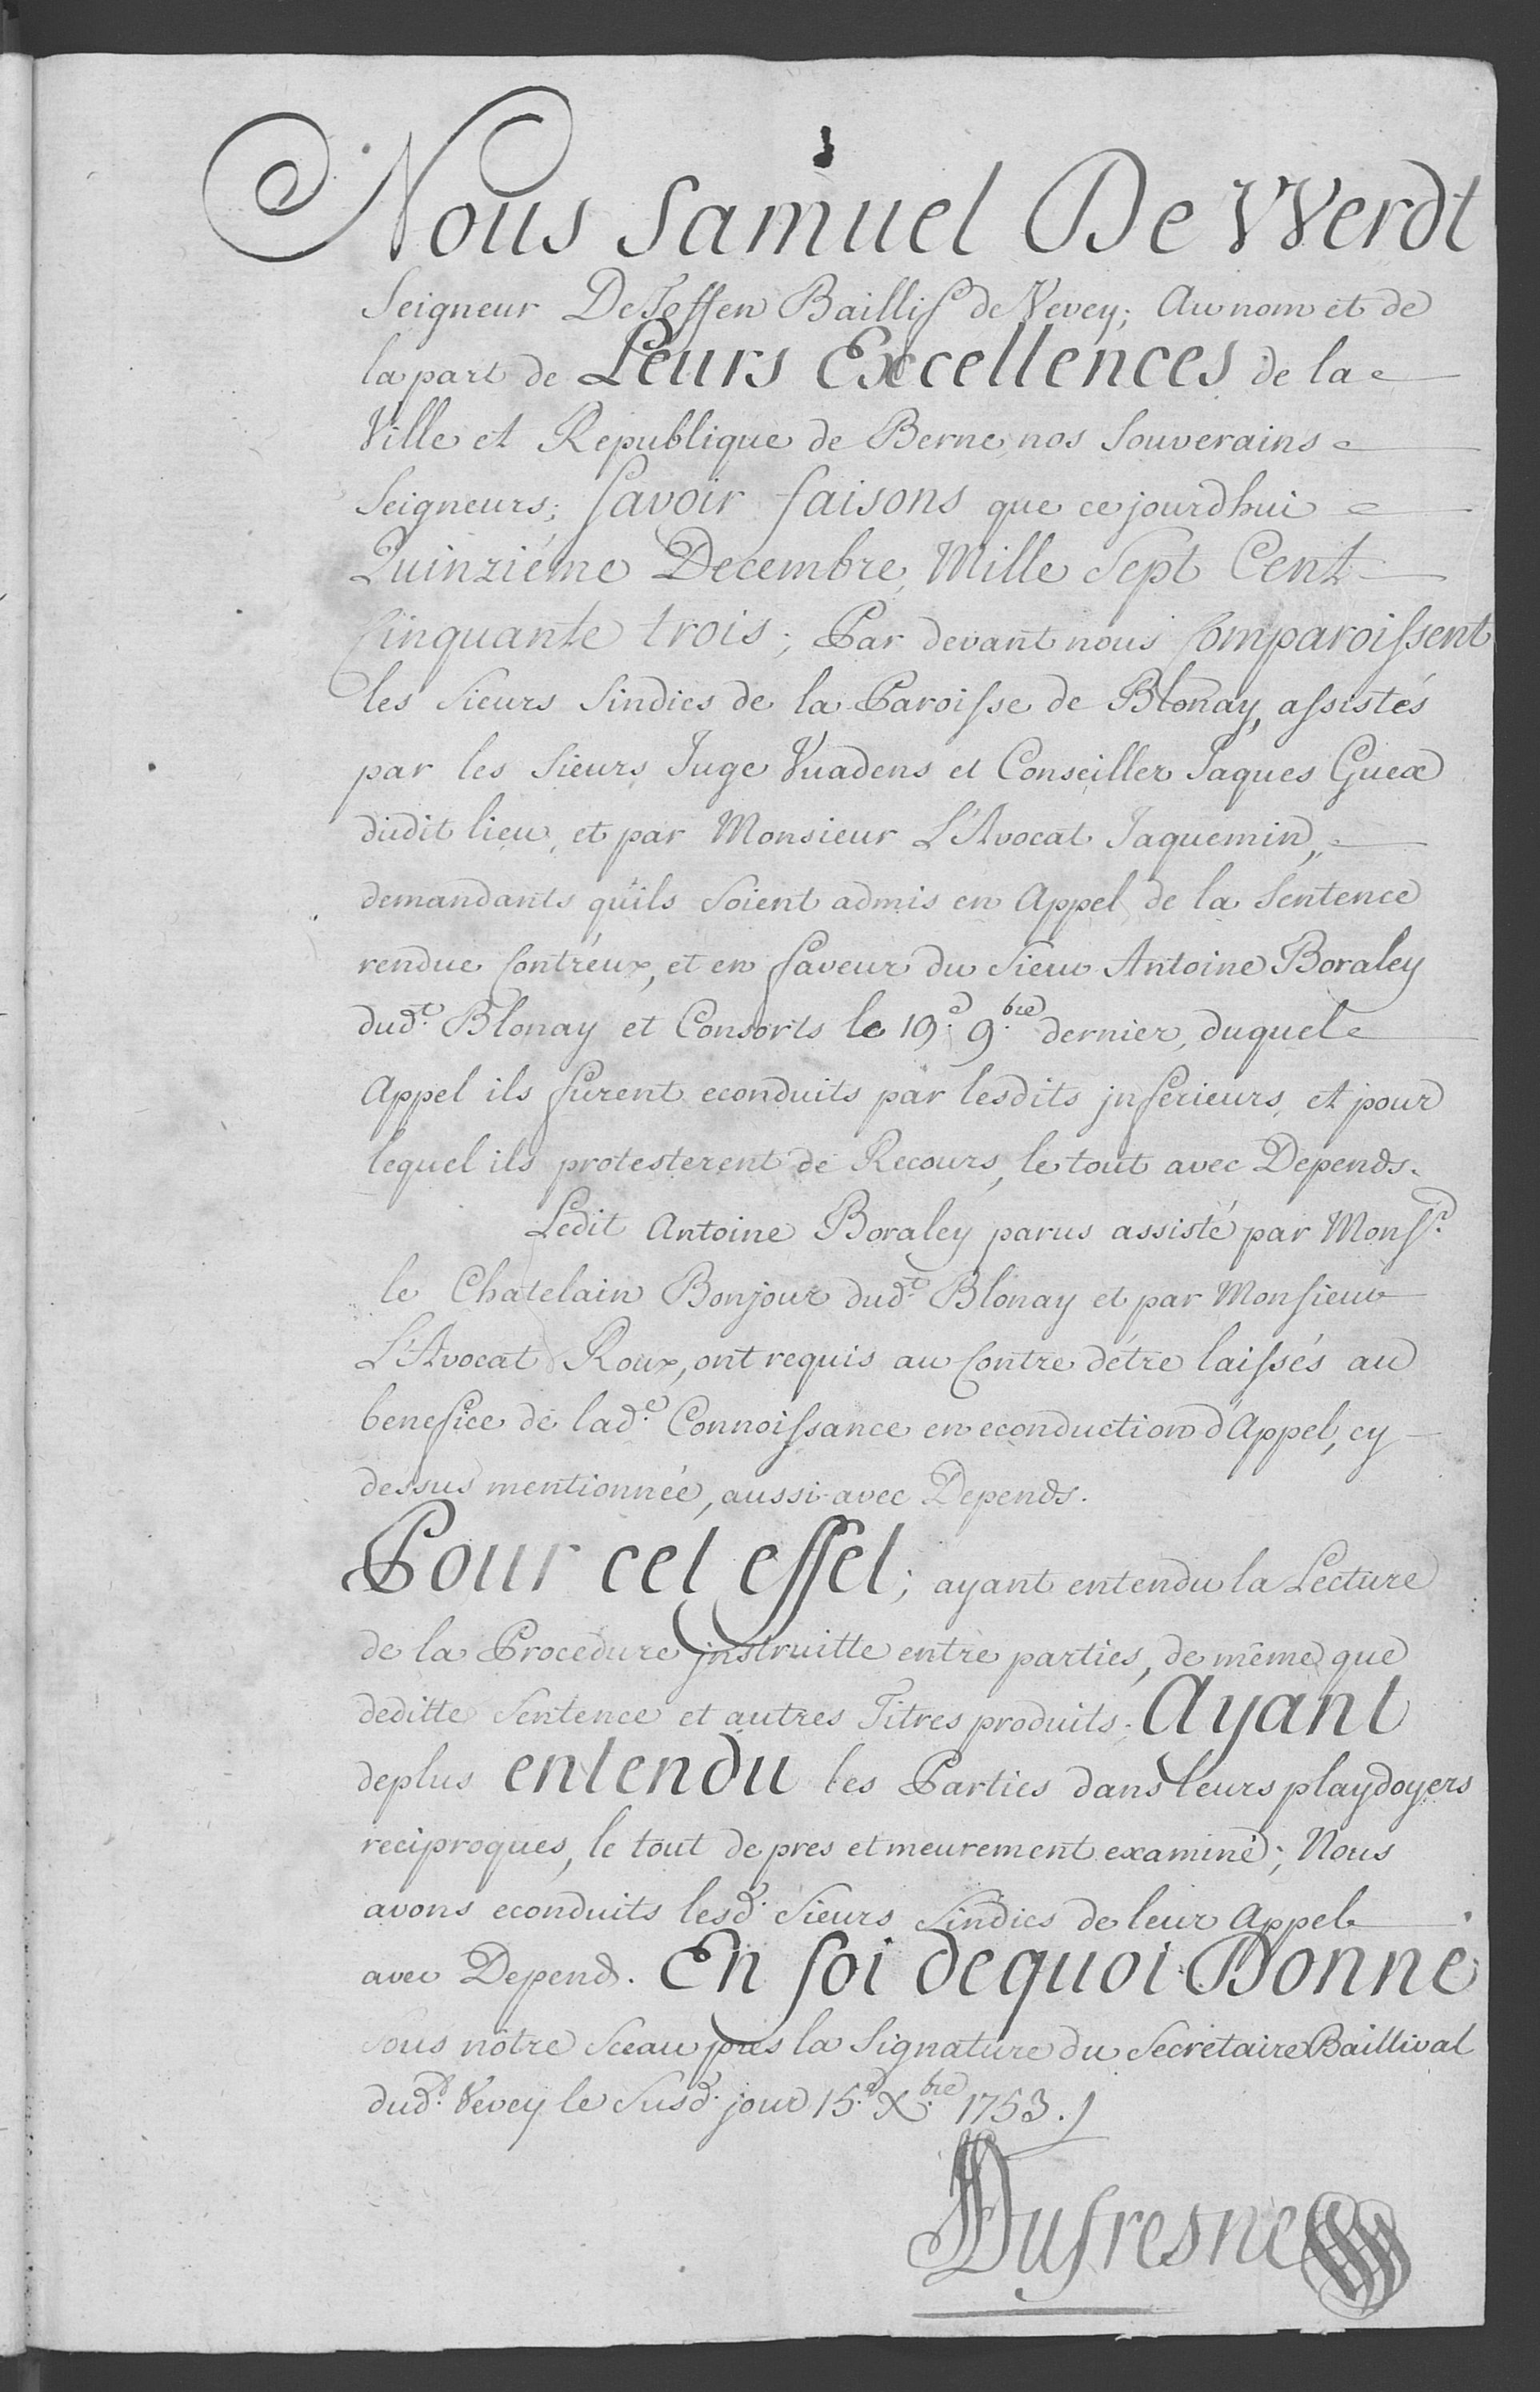 Nous Samuel De VVerdt
Seigneur De Toffen Baillif de Vevey; Au nom et de
la part de Leurs Excellences de la
Ville et Republique de Berne nos Souverains
Seigneurs; Savoir faisons que ce jourdhui
Quinziéme Decembre, Mille Sept Cent
Cinquante trois; Par devant nous Comparoissent
les Sieurs Sindics de la Paroisse de Blonay, assistés
par les Sieurs Juge Vuadens et Conseiller Jaques Guex
dudit lieu, et par Monsieur L'Avocat Jaquemin,
demandants qu'ils soient admis en Appel de la Sentence
rendue Contr'eux, et en faveur du Sieur Antoine Boraley
dud.t Blonay et Consorts le 19.e 9.bre dernier, duquel
Appel ils furent econduits par lesdits jnferieurs, et pour
lequel ils protesterent de Recours, le tout avec Depends.
Ledit Antoine Boraley parus assisté par Mons.r
le Chatelain Bonjour dud.t Blonay et par Monsieur
L'Avocat Roux, ont requis au Contre détre laissés au
benefice de lad.e Connoissance en econduction d'Appel, cy
dessus mentionnée, aussi avec Depends.
Pour cet effet; ayant entendu la Lecture
de la Procedure jnstruitte entre parties, de même que
deditte Sentence et autres Titres produits; Ayant
deplus entendu les Parties dans leurs playdoyers
reciproques, le tout de pres et meurement examiné; Nous
avons econduits lesd.s Sieurs Sindics de leur Appel
avec Depend. En foi dequoi Donné
sous nôtre Sceau pres la Signature du Secretaire Baillival
dud.t Vevey le Susd.t jour 15.e X.bre 1753.
Dufresne